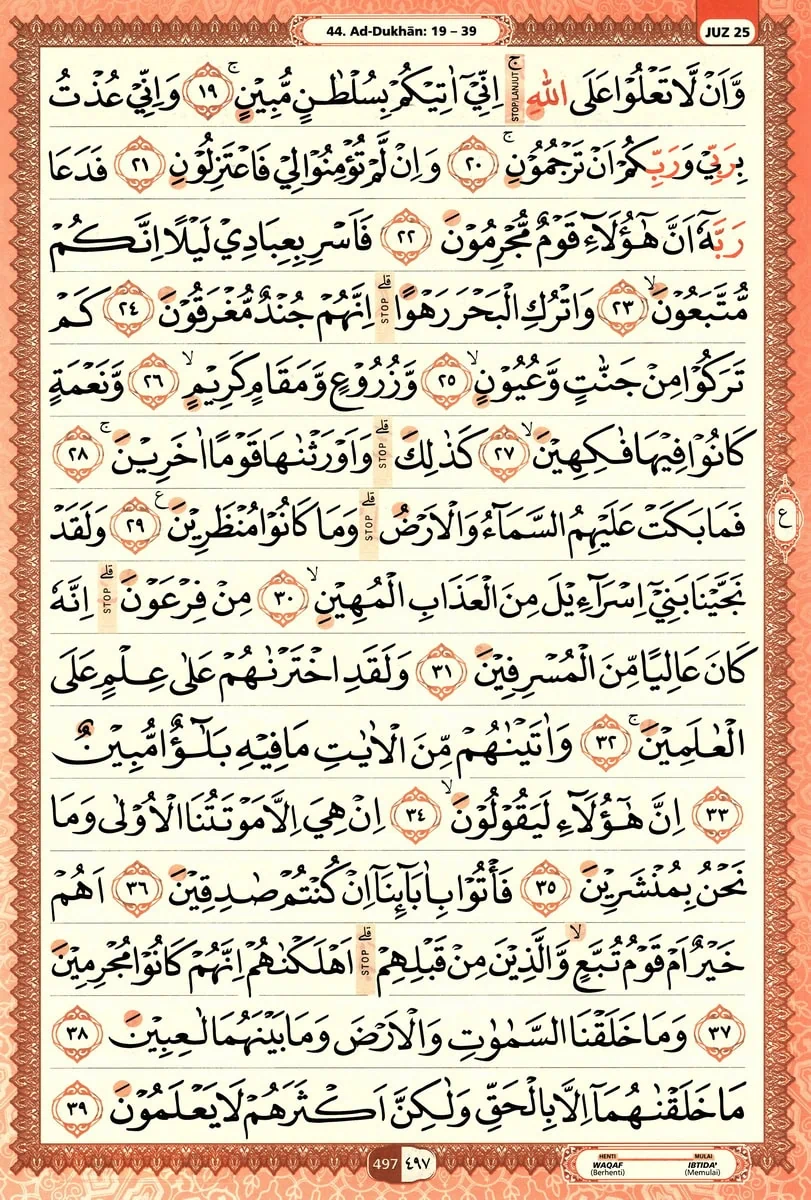 44. Ad-Dukhān: 19 – 39
JUZ 25
وَّاَنْ لَّا تَعْلُوْا عَلَى اللّٰهِ ۚ اِنِّيْٓ اٰتِيْكُمْ بِسُلْطٰنٍ مُّبِيْنٍۚ ﴿١٩﴾ وَاِنِّيْ عُذْتُ
بِرَبِّيْ وَرَبِّكُمْ اَنْ تَرْجُمُوْنِۚ ﴿٢٠﴾ وَاِنْ لَّمْ تُؤْمِنُوْا لِيْ فَاعْتَزِلُوْنِ ﴿٢١﴾ فَدَعَا
رَبَّهٗٓ اَنَّ هٰٓؤُلَاۤءِ قَوْمٌ مُّجْرِمُوْنَ ﴿٢٢﴾ فَاَسْرِ بِعِبَادِيْ لَيْلًا اِنَّكُمْ
مُّتَّبَعُوْنَۙ ﴿٢٣﴾ وَاتْرُكِ الْبَحْرَ رَهْوًا ۗ اِنَّهُمْ جُنْدٌ مُّغْرَقُوْنَ ﴿٢٤﴾ كَمْ
تَرَكُوْا مِنْ جَنّٰتٍ وَّعُيُوْنٍۙ ﴿٢٥﴾ وَّزُرُوْعٍ وَّمَقَامٍ كَرِيْمٍۙ ﴿٢٦﴾ وَّنَعْمَةٍ
كَانُوْا فِيْهَا فٰكِهِيْنَۙ ﴿٢٧﴾ كَذٰلِكَ ۗ وَاَوْرَثْنٰهَا قَوْمًا اٰخَرِيْنَۚ ﴿٢٨﴾
فَمَا بَكَتْ عَلَيْهِمُ السَّمَاۤءُ وَالْاَرْضُ ۗ وَمَا كَانُوْا مُنْظَرِيْنَ ࣖ ﴿٢٩﴾ وَلَقَدْ
نَجَّيْنَا بَنِيْٓ اِسْرَاۤءِيْلَ مِنَ الْعَذَابِ الْمُهِيْنِۙ ﴿٣٠﴾ مِنْ فِرْعَوْنَ ۗ اِنَّهٗ
كَانَ عَالِيًا مِّنَ الْمُسْرِفِيْنَ ﴿٣١﴾ وَلَقَدِ اخْتَرْنٰهُمْ عَلٰى عِلْمٍ عَلَى
الْعٰلَمِيْنَۚ ﴿٣٢﴾ وَاٰتَيْنٰهُمْ مِّنَ الْاٰيٰتِ مَا فِيْهِ بَلٰۤـؤٌا مُّبِيْنٌ
﴿٣٣﴾ اِنَّ هٰٓؤُلَاۤءِ لَيَقُوْلُوْنَۙ ﴿٣٤﴾ اِنْ هِيَ اِلَّا مَوْتَتُنَا الْاُوْلٰى وَمَا
نَحْنُ بِمُنْشَرِيْنَ ﴿٣٥﴾ فَأْتُوْا بِاٰبَاۤىِٕنَآ اِنْ كُنْتُمْ صٰدِقِيْنَ ﴿٣٦﴾ اَهُمْ
خَيْرٌ اَمْ قَوْمُ تُبَّعٍۙ وَّالَّذِيْنَ مِنْ قَبْلِهِمْ ۗ اَهْلَكْنٰهُمْ اِنَّهُمْ كَانُوْا مُجْرِمِيْنَ
﴿٣٧﴾ وَمَا خَلَقْنَا السَّمٰوٰتِ وَالْاَرْضَ وَمَا بَيْنَهُمَا لٰعِبِيْنَ ﴿٣٨﴾
مَا خَلَقْنٰهُمَآ اِلَّا بِالْحَقِّ وَلٰكِنَّ اَكْثَرَهُمْ لَا يَعْلَمُوْنَ ﴿٣٩﴾
ع
497 ٤٩٧
HENTI MULAI
WAQAF IBTIDA'
(Berhenti) (Memulai)